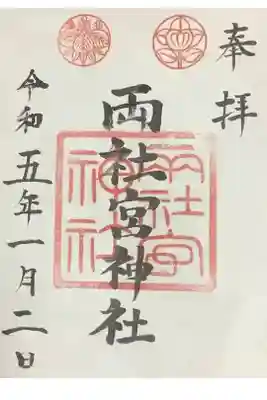 奉拝
両社宮神社
令和五年一月二日
両社宮
神社